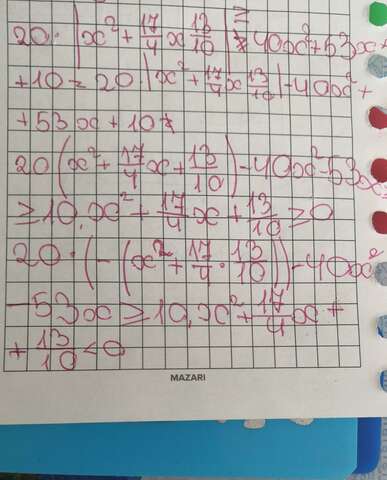 20·|x²+17/4x 13/10|≥40x²+53x+
+10=20·|x²+17/4x 13/10|-40x²+
+53x+10
20(x²+17/4x+13/10)-40x²-53x
≥10,x²+17/4x+13/10≥0
20·(-(x²+17/4·13/10))-40x²
-53x≥10,x²+17/4x+
+13/10<0
MAZARI